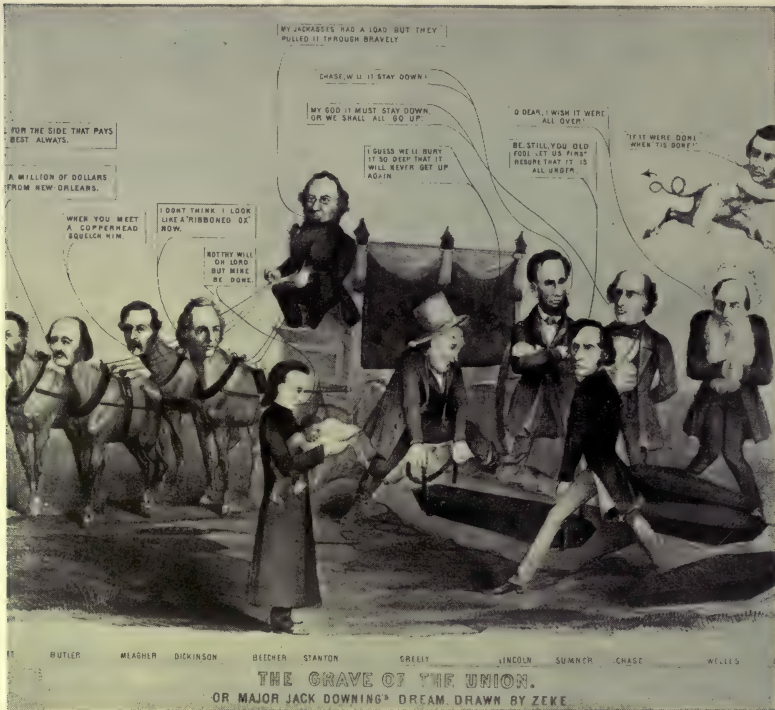 MY JACKASSES HAD A LOAD BUT THEY
PULLED IT THROUGH BRAVELY
CHASE, WILL IT STAY DOWN?
MY GOD IT MUST STAY DOWN,
OR WE SHALL ALL GO UP.
O DEAR, I WISH IT WERE
ALL OVER!
FOR THE SIDE THAT PAYS
BEST ALWAYS.
I GUESS WE'LL BURY
IT SO DEEP THAT IT
WILL NEVER GET UP
AGAIN
BE STILL, YOU OLD
FOOL LET US FIRST
BE SURE THAT IT IS
ALL UNDER.
"IF IT WERE DONE
WHEN 'TIS DONE!"
A MILLION OF DOLLARS
FROM NEW-ORLEANS.
WHEN YOU MEET
A COPPERHEAD
SQUELCH HIM.
I DONT THINK I LOOK
LIKE A "RIBBONED OX"
NOW.
NOT THY WILL
OH LORD
BUT MINE
BE DONE.
BUTLER MEAGHER DICKINSON BEECHER STANTON GREELY LINCOLN SUMNER CHASE WELLES
THE GRAVE OF THE UNION.
OR MAJOR JACK DOWNING'S DREAM, DRAWN BY ZEKE